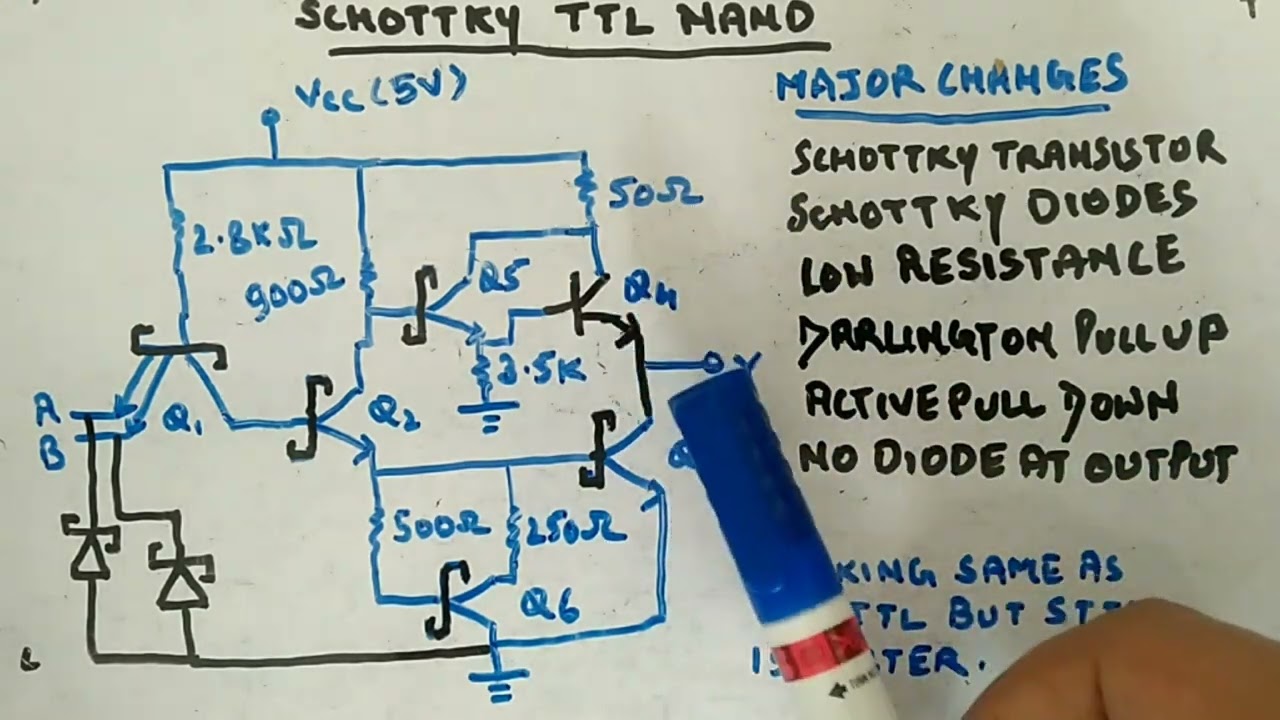 SCHOTTKY TTL NAND
VCC (5V)
MAJOR CHANGES
SCHOTTKY TRANSISTOR
SCHOTTKY DIODES
LOW RESISTANCE
DARLINGTON PULL UP
ACTIVE PULL DOWN
NO DIODE AT OUTPUT
50Ω
2.8KΩ
900Ω
Q5
Q4
3.5K
Y
A
B
Q1
Q2
Q
500Ω
250Ω
Q6
KING SAME AS
TTL BUT ST
IS TER.